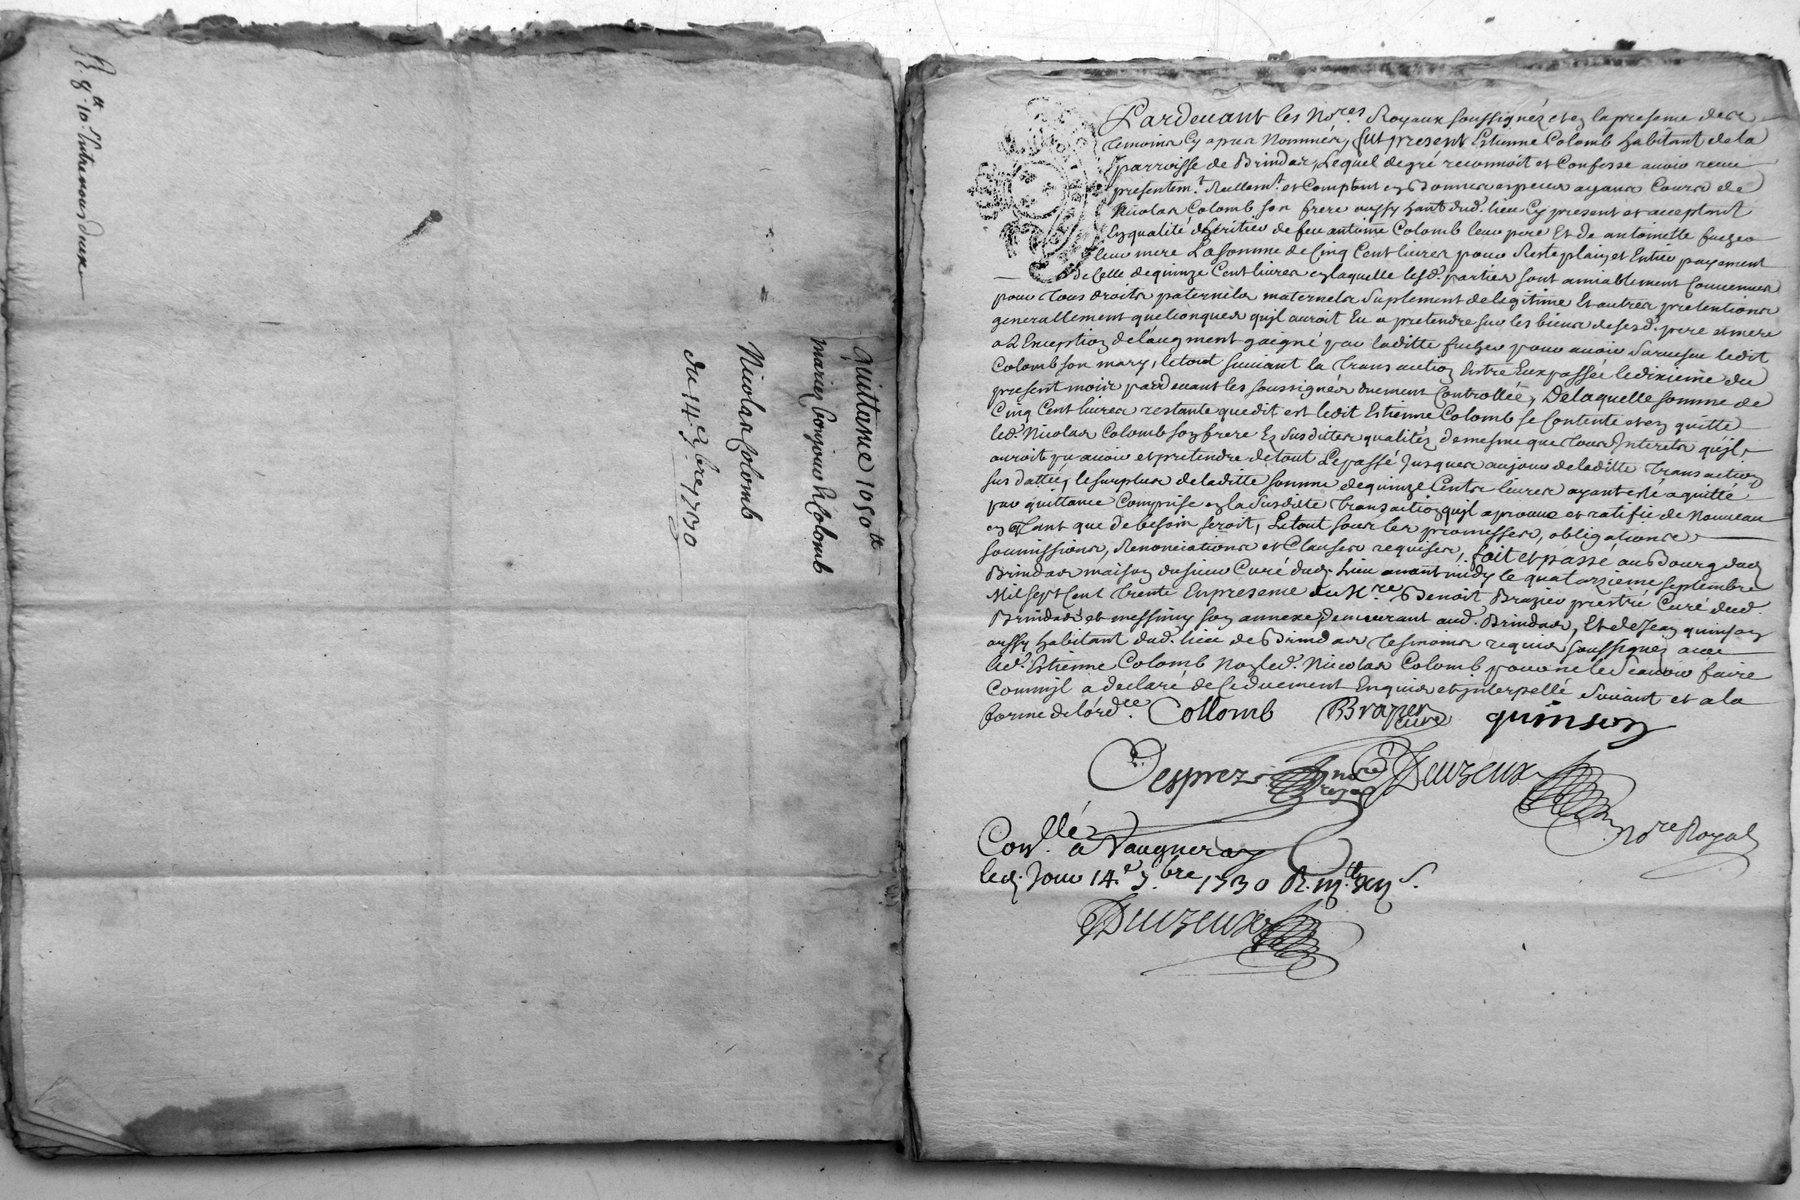 R. 8.tt 10.s Entre nous deux
Quittance 1050tt
marie bonjour Colomb
Nicolas Colomb
du 14.e 7bre 1730
Pardevant les No.res Royaux soussignéz et en la presence des
temoins Cy apres Nommés, fut present Estienne Colomb habitant de la
parroisse de Brindas, Lequel de gré reconnoit et Confesse avoir receu
presentem.t Reellem.t et Comptant en bonnes especes ayant Cours de
Nicolas Colomb son frere aussy hant dud. lieu Cy present et acceptant
En qualité d'heritier de feu antoine Colomb leur pere Et de antoinette
leur mere La somme de Cinq Cent livres pour Reste plain et Entier payement
de Celle de quinze Cent livres en laquelle lesd. parties sont amiablement Convenues
pour tous droits paternels maternels Suplement de legitime Et autres pretentions
generallement quelconques qu'jl auroit Eu a pretendre sur les biens de sesd. pere et mere
a L'Exception de l'augment gaigné par laditte pour avoir Survescu ledit
Colomb son mary, le tout suivant la Transaction Entre Eux passée le dixieme du
present mois pardevant les soussignés duement Controllée, De laquelle somme de
Cinq Cent livres restante que dit est ledit Estienne Colomb se Contente et en quitte
led. Nicolas Colomb son frere Es Susdittes qualités de mesme que tous Interets qu'jl
auroit pu avoir et pretendre de tout Le passé Jusques aujour de laditte Transaction
sus dattée, le surplus de laditte somme de quinze Cents livres ayant esté aquitté
par quittance Comprise en la Susditte Transaction qu'jl aprouve et ratifie de Nouveau
en Tant que de besoin seroit, Le tout sous les promesses, obligations
soumissions, Renonciations et Clauses requises, fait et passé au Bourg dud.
Brindas maison du sieur Curé dud. lieu avant midy le quatorzieme septembre
Mil sept Cent Trente En presence de M.re Benoit Brazier prestre Curé dud.
Brindas et messimy son annexe, demeurant aud. Brindas, Et de Jean quinson
aussy habitant dud. lieu de Brindas Tesmoins requis soussignés avec
led. Estienne Colomb Non led. Nicolas Colomb pour ne le Scavoir faire
Comm'jl a declaré de Ce duement Enquis et interpellé Suivant et a la
forme de l'ord.ce Collomb Brazier curé quinson
Desprez no.re Royal Duzeux No.re Royal
Con.llé a Vaugneray
led. Jour 14.e 7.bre 1730 R.
Duzeux